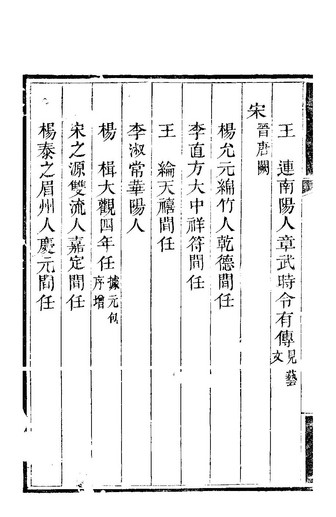 王　連南陽人章武時令有傳見藝文
晉唐闕
宋
楊允元綿竹人乾德間任
李直方大中祥符間任
王　綸天禧間任
李淑常華陽人
楊　楫大觀四年任據元包序增
宋之源雙流人嘉定間任
楊泰之眉州人慶元間任